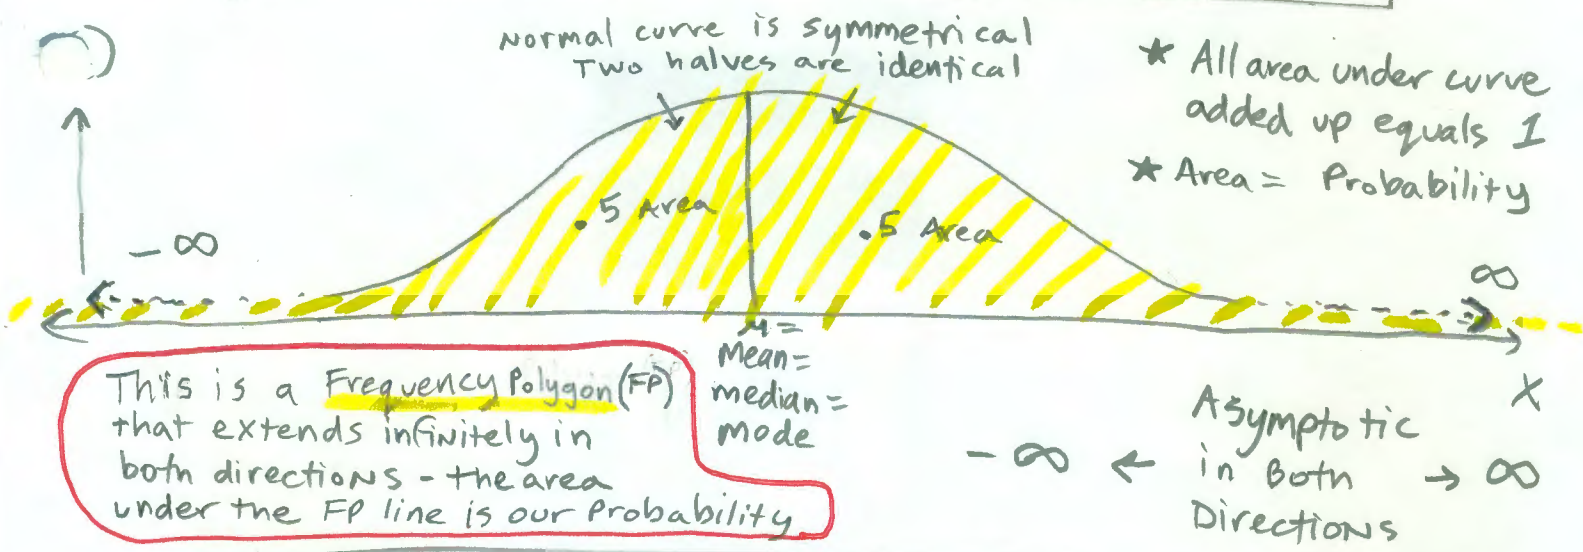 Normal curve is symmetrical
Two halves are identical
* All area under curve
added up equals 1
* Area = Probability
-∞
.5 Area
.5 Area
∞
μ =
Mean =
median =
mode
X
This is a Frequency Polygon (FP)
that extends infinitely in
both directions - the area
under the FP line is our Probability
Asymptotic
-∞ ← in Both → ∞
Directions